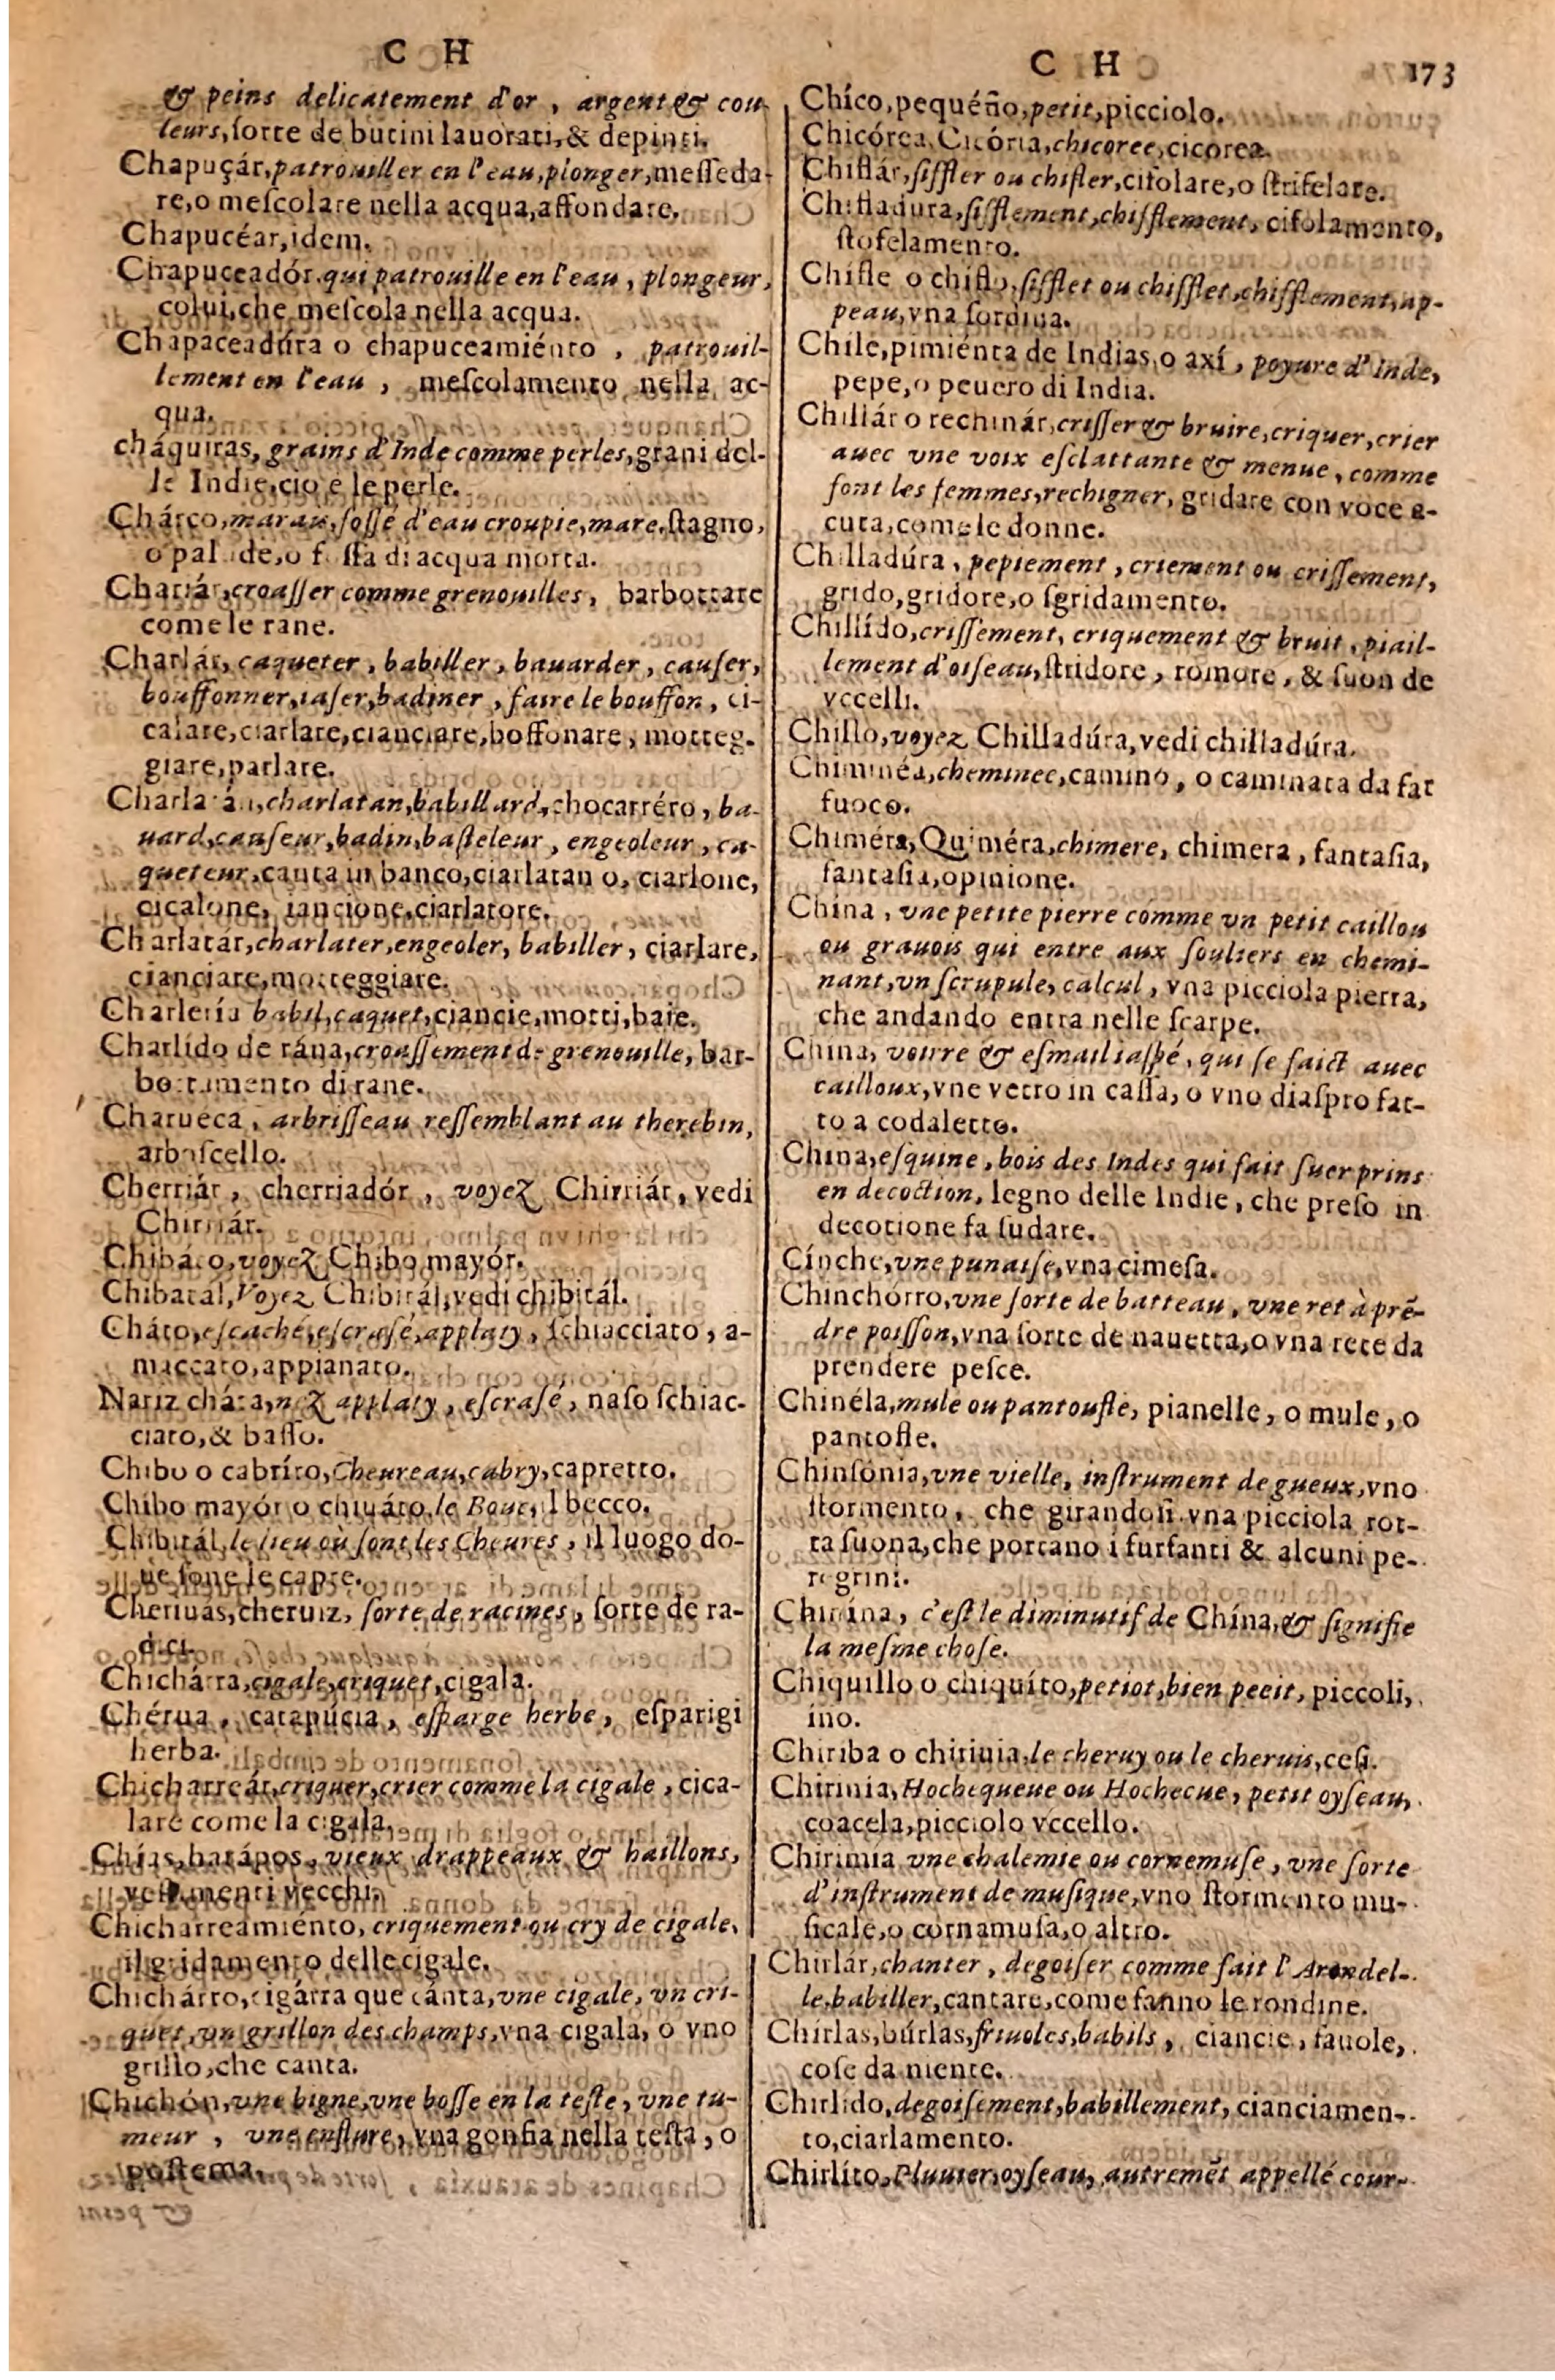 C H
& peins delicatement d'or, argent & cou-
leurs, sorte de butini lauorati, & depinti.
Chapuçár, patrouiller en l'eau, plonger, messeda-
re, o mescolare nella acqua, affondare.
Chapucéar, idem.
Chapuceadór. qui patrouille en l'eau, plongeur,
colui, che mescola nella acqua.
Chapaceadúra o chapuceamiénto, patrouil-
lement en l'eau, mescolamento nella ac-
qua.
cháquiras, grains d'Inde comme perles, grani del-
le Indie, cio e le perle.
Chárco, marais, fossé d'eau croupie, mare, stagno,
o palude, o fossa di acqua morta.
Charlár, croasser comme grenouilles, barbottare
come le rane.
Charlár, caqueter, babiller, bauarder, causer,
bouffonner, iaser, badiner, faire le bouffon, ci-
calare, ciarlare, cianciare, boffonare, motteg-
giare, parlare.
Charlatán, charlatan, babillard, chocarréro, ba-
uard, causeur, badin, basteleur, engeoleur, ca-
queteur, canta in banco, ciarlatano, ciarlone,
cicalone, iancione, ciarlatore.
Charlatár, charlater, engeoler, babiller, ciarlare,
cianciare, motteggiare.
Charlería babil, caquet, ciancie, motti, baie.
Charlído de rána, croassement de grenouille, bar-
bottamento di rane.
Charueca, arbrisseau ressemblant au therebin,
arboscello.
Cherriár, cherriadór, voyez Chirriár, vedi
Chirriár.
Chibáto, voyez Chibo mayór.
Chibatál, Voyez Chibitál, vedi chibitál.
Cháto, escaché, escrasé, applaty, schiacciato, a-
maccato, appianato.
Nariz cháta, nez applaty, escrasé, naso schiac-
ciato, & basso.
Chibo o cabríto, Cheureau, cabry, capretto.
Chíbo mayór o chiuáto, le Bouc, il becco.
Chibitál, le lieu où sont les Cheures, il luogo do-
ue sone le capre.
Cheriuas, cheruiz, sorte de racines, sorte de ra-
dici.
Chichárra, cigale, criquet, cigala.
Chérua, catapúcia, esparge herbe, esparigi
herba.
Chicharreár, criquer, crier comme la cigale, cica-
lare come la cigala.
Chías, harápos, vieux drappeaux & haillons,
vestimenti vecchi.
Chicharreamiénto, criquement ou cry de cigale,
il gridamento delle cigale.
Chichárro, cigárra que cánta, vne cigale, vn cri-
quet, vn grillon des champs, vna cigala, o vno
grillo, che canta.
Chichón, vne bigne, vne bosse en la teste, vne tu-
meur, vne enflure, vna gonfia nella testa, o
postema.
C H 173
Chíco, pequéño, petit, picciolo.
Chicórea, Cicória, chicoree, cicorea.
Chiflár, siffler ou chifler, cifolare, o strifelare.
Chifladura, sifflement, chifflement, cifolamento,
stofelamento.
Chifle o chiflo, sifflet ou chifflet, chifflement, ap-
peau, vna sordina.
Chile, pimiénta de Indias, o axí, poyure d'Inde,
pepe, o peuero di India.
Chillár o rechinár, crisser & bruire, criquer, crier
auec vne voix esclattante & menue, comme
font les femmes, rechigner, gridare con voce a-
cuta, come le donne.
Chilladúra, pepiement, criement ou crissement,
grido, gridore, o sgridamento.
Chillído, crissement, criquement & bruit, piail-
lement d'oiseau, stridore, romore, & suon de
vccelli.
Chillo, voyez Chilladúra, vedi chilladúra.
Chiminéa, cheminee, camino, o caminata da far
fuoco.
Chiméra, Quiméra, chimere, chimera, fantasia,
fantasia, opinione.
China, vne petite pierre comme vn petit caillou
ou grauois qui entre aux souliers en chemi-
nant, vn scrupule, calcul, vna picciola pierra,
che andando entra nelle scarpe.
China, voirre & esmail iaspé, qui se faict auec
cailloux, vne vetro in cassa, o vno diaspro fat-
to a codaletto.
China, esquine, bois des Indes qui fait suer prins
en decoction, legno delle Indie, che preso in
decotione fa sudare.
Cínche, vne punaise, vna cimesa.
Chinchórro, vne sorte de batteau, vne ret à prē-
dre poisson, vna sorte de nauetta, o vna rete da
prendere pesce.
Chinéla, mule ou pantoufle, pianelle, o mule, o
pantofle.
Chinsónia, vne vielle, instrument de gueux, vno
stormento, che girandosi vna picciola rot-
ta suona, che portano i furfanti & alcuni pe-
regrini.
Chinína, c'est le diminutif de Chína, & signifie
la mesme chose.
Chiquillo o chiquíto, petiot, bien petit, piccoli,
ino.
Chiriba o chiriuia, le cheruy ou le cheruis, cesi.
Chiriuia, Hochequeue ou Hochecue, petit oyseau,
coacela, picciolo vccello.
Chirimia vne chalemie ou cornemuse, vne sorte
d'instrument de musique, vno stormento mu-
sicale, o cornamusa, o altro.
Chirlár, chanter, degoiser comme fait l'Arondel-
le, babiller, cantare, come fanno le rondine.
Chírlas, búrlas, friuoles, babils, ciancie, fauole,
cose da niente.
Chirlido, degoisement, babillement, cianciamen-
to, ciarlamento.
Chirlíto, Pluuier, oyseau, autremēt appellé cour-